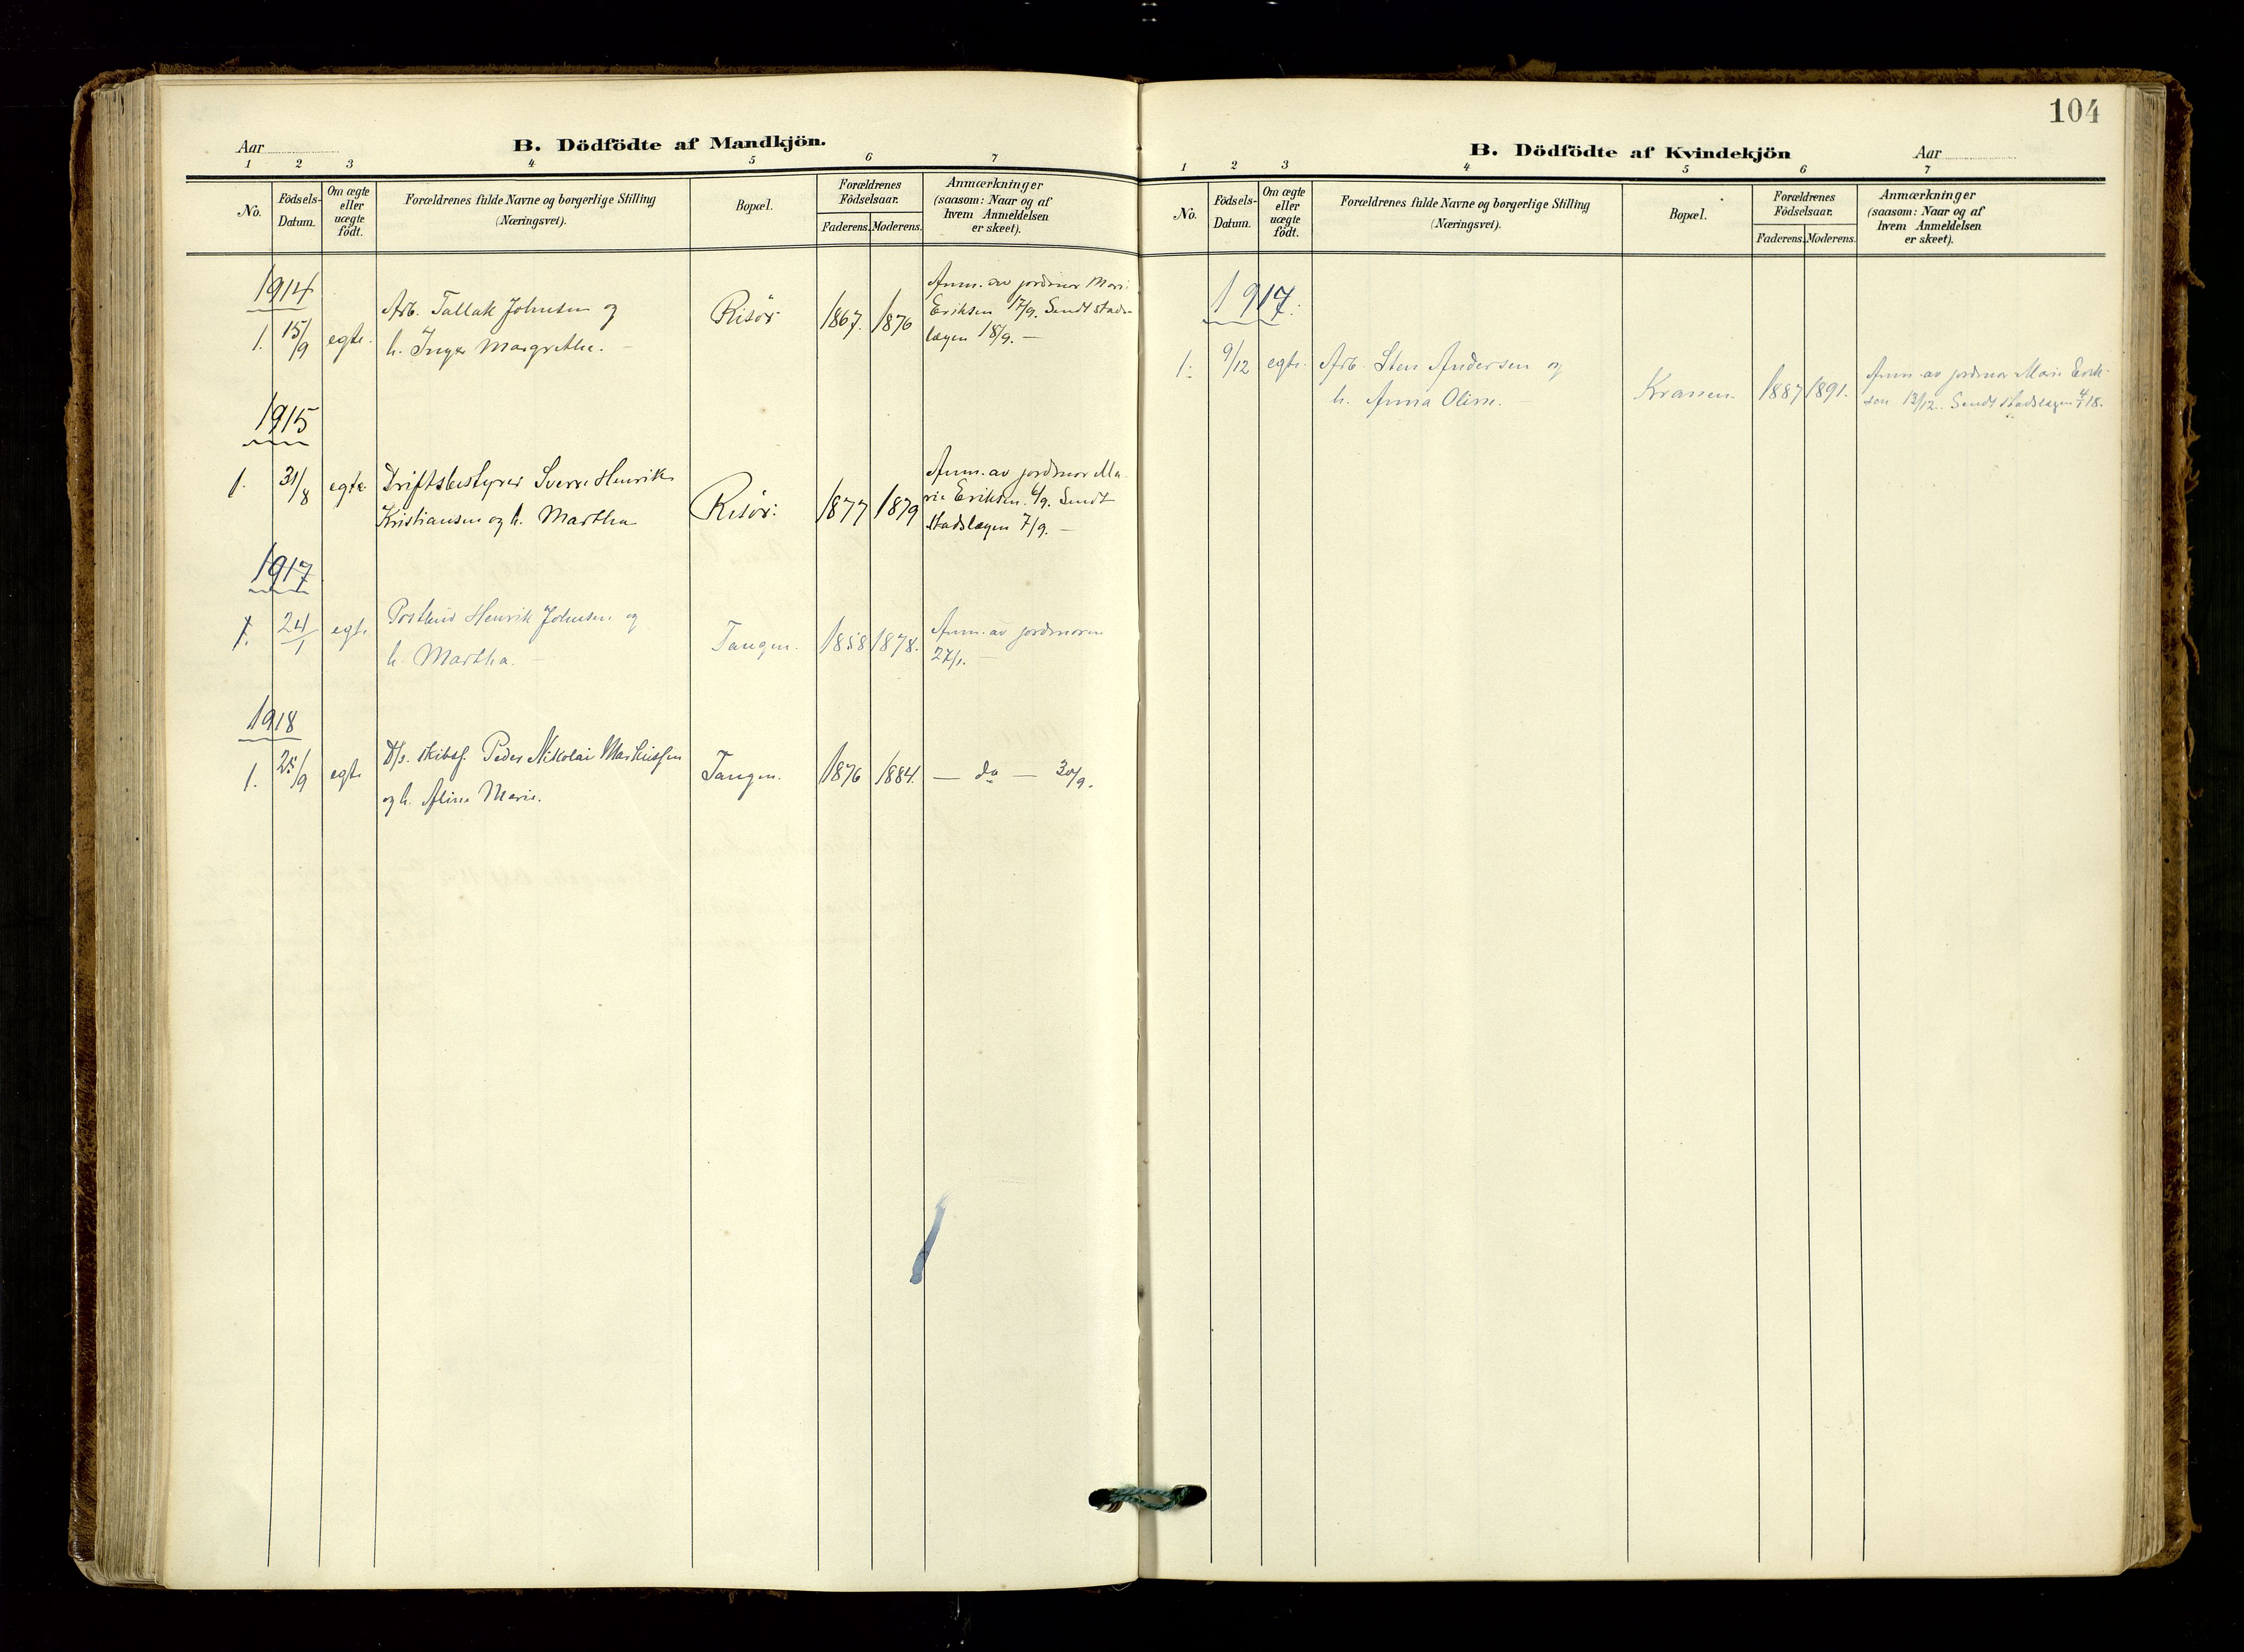 Aar
B. Dödfödte af Mandkjön.
1 2 3 4 5 6 7
No.
Födsels-
Datum.
Om ægte
eller
uægte
födt.
Forældrenes fulde Navne og borgerlige Stilling
(Næringsvei).
Bopæl.
Forældrenes
Födselsaar.
Faderens. Moderens.
Anmærkninger
(saasom: Naar og af
hvem Anmeldelsen
er skeet).
1914
1. 15/9 egte. Arb. Tallak Johnsen og
h. Inger Margrethe. —
Risör 1867. 1876
Anm. av jordmor Mari
Eriksen 17/9. Sendt stads-
lægen 18/9. —
1915
1. 31/8 egte Driftsbestyrer Sverre Henrik
Kristiansen og h. Martha
Risör. 1877 1879
Anm. av jordmor Ma-
rie Eriksen. 6/9. Sendt
stadslægen 7/9. —
1917
1. 24/1 egte Postbud Henrik Johnsen og
h. Martha. —
Tangen. 1858 1878.
Anm. av jordmoren
27/1. —
1918
1. 25/9 egte D/s. skibsf. Peder Nikolai Markussen
og h. Aline Marie.
Tangen. 1876 1884. — do — 30/9.
104
B. Dödfödte af Kvindekjön
Aar
1 2 3 4 5 6 7
No.
Födsels-
Datum.
Om ægte
eller
uægte
födt.
Forældrenes fulde Navne og borgerlige Stilling
(Næringsvei).
Bopæl.
Forældrenes
Födselsaar.
Faderens. Moderens.
Anmærkninger
(saasom: Naar og af
hvem Anmeldelsen
er skeet).
1917.
1. 9/12 egte. Arb. Sten Andersen og
h. Anna Oline. —
Kranen. 1887 1891.
Anm. av jordmor Marie Erik-
sen 13/12. Sendt stadslægen 18.